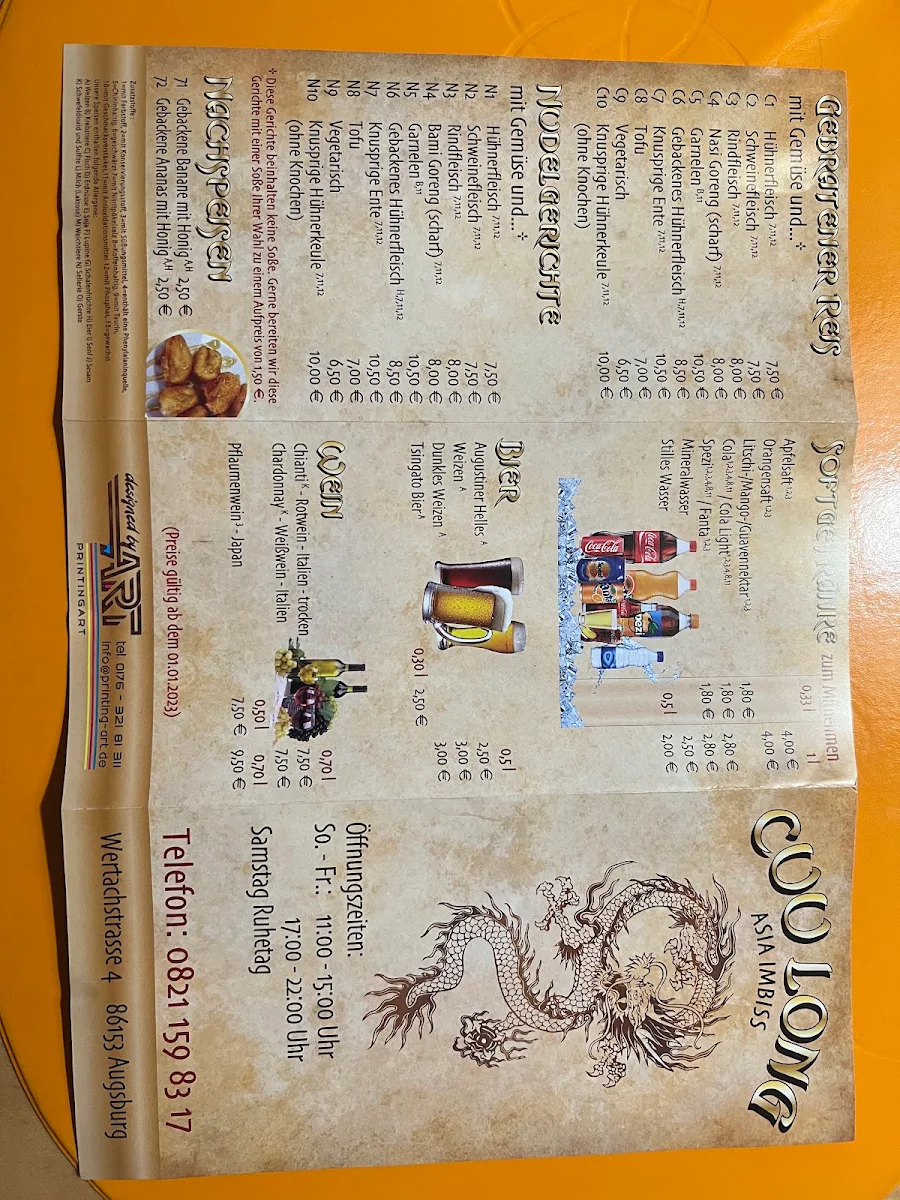 GEBRATENER REIS
mit Gemüse und...✢
C1 Hühnerfleisch 7,11,12 7,50 €
C2 Schweinefleisch 7,11,12 7,50 €
C3 Rindfleisch 7,11,12 8,00 €
C4 Nasi Goreng (scharf) 7,11,12 8,00 €
C5 Garnelen B,11 10,50 €
C6 Gebackenes Hühnerfleisch H,7,11,12 8,50 €
C7 Knusprige Ente 7,11,12 10,50 €
C8 Tofu 7,00 €
C9 Vegetarisch 6,50 €
C10 Knusprige Hühnerkeule 7,11,12 10,00 €
(ohne Knochen)
NUDELGERICHTE
mit Gemüse und...✢
N1 Hühnerfleisch 7,11,12 7,50 €
N2 Schweinefleisch 7,11,12 7,50 €
N3 Rindfleisch 7,11,12 8,00 €
N4 Bami Goreng (scharf) 7,11,12 8,00 €
N5 Garnelen B,11 10,50 €
N6 Gebackenes Hühnerfleisch H,7,11,12 8,50 €
N7 Knusprige Ente 7,11,12 10,50 €
N8 Tofu 7,00 €
N9 Vegetarisch 6,50 €
N10 Knusprige Hühnerkeule 7,11,12 10,00 €
(ohne Knochen)
✢ Diese Gerichte beinhalten keine Soße. Gerne bereiten wir diese
Gerichte mit einer Soße Ihrer Wahl zu einem Aufpreis von 1,50 €.
NACHSPEISEN
71 Gebackene Banane mit Honig A,H 2,50 €
72 Gebackene Ananas mit Honig A,H 2,50 €
Zusatzstoffe:
1=mit Farbstoff, 2=mit Konservierungsstoff, 3=mit Süßungsmittel, 4=enthält eine Phenylalaninquelle,
5=Chininhaltig, 6=geschwärzt 7=mit Nitritpökelsalz 8=Koffeinhaltig, 9=mit Taurin,
10=mit Geschmacksverstärker, 11=mit Antioxidationsmittel 12=mit Phosphat, 13=gewachst
Unsere Speisen enthalten folgende Allergene:
A) Weizen B) Krebstiere C) Fisch D) Erdnüsse E) Soja F) Lupine G) Schalenfrüchte H) Eier I) Senf J) Sesam
K) Schwefeldioxid und Sulfite L) Milch (Laktose) M) Weichtiere N) Sellerie O) Gerste
SOFTGETRÄNKE zum Mitnehmen
0,33 l 1 l
Apfelsaft 1,2,3 4,00 €
Orangensaft 1,2,3 4,00 €
Litschi-/Mango-/Guavennektar 1,2,3 1,80 €
Cola 1,2,3,4,8,11 / Cola Light 1,2,3,4,8,11 1,80 € 2,80 €
Spezi 1,2,3,4,8,11 / Fanta 1,2,3 1,80 € 2,80 €
Mineralwasser 2,50 €
Stilles Wasser 0,5 l 2,00 €
Coca-Cola
Coca-Cola
BIER
0,5 l
Augustiner Helles A 2,50 €
Weizen A 3,00 €
Dunkles Weizen A 3,00 €
Tsingato Bier A 0,30 l 2,50 €
WEIN
0,70 l
Chianti K - Rotwein - Italien - trocken 7,50 €
Chardonnay K - Weißwein - Italien 7,50 €
0,50 l 0,70 l
Pflaumenwein 3 - Japan 7,50 € 9,50 €
(Preise gültig ab dem 01.01.2023)
designed by ART
PRINTINGART
tel. 0176 - 321 81 311
info@printing-art.de
CUU LONG
ASIA IMBISS
Öffnungszeiten:
So. - Fr.: 11:00 - 15:00 Uhr
17:00 - 22:00 Uhr
Samstag Ruhetag
Telefon: 0821 159 83 17
Wertachstrasse 4 86153 Augsburg